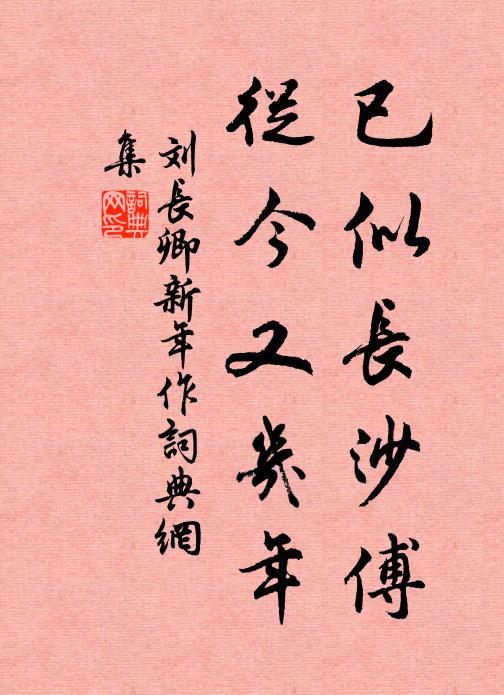 已似長沙傅
從今又幾年
刘長卿新年作詞典網
集
詞典
网印